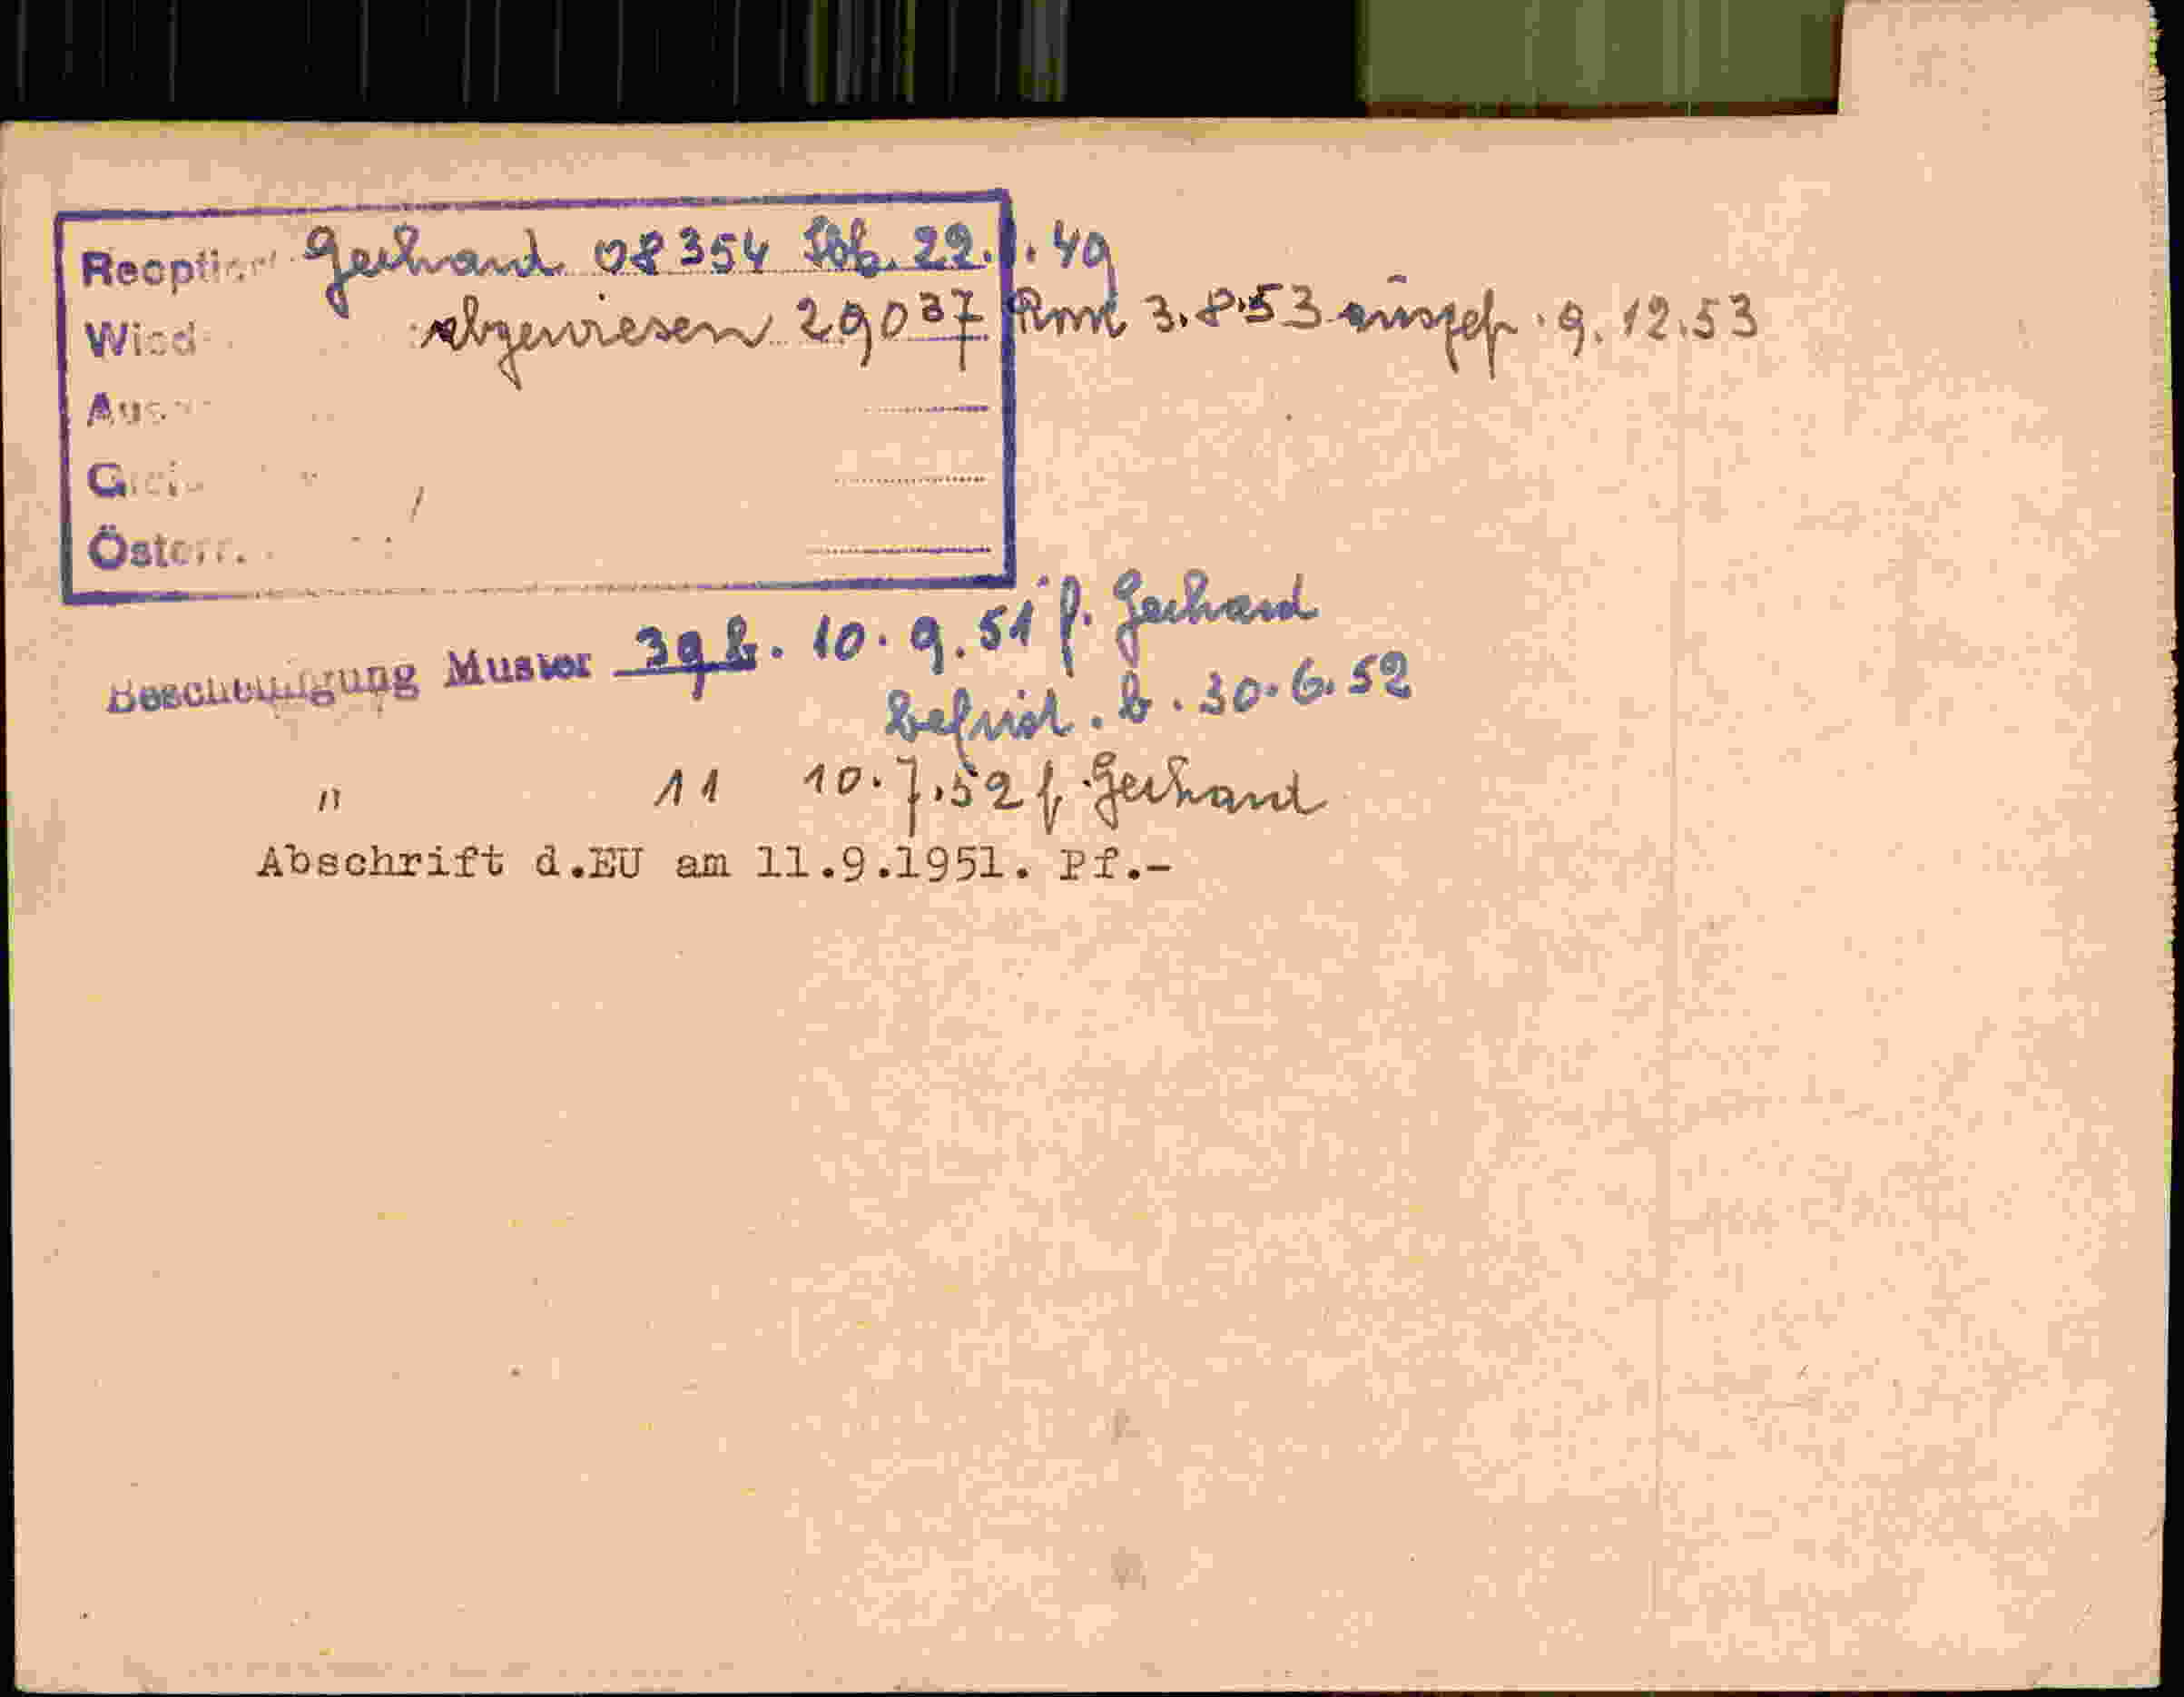 Reoptiert Gerhard 08354 22.1.49
abgewiesen 29037 Rom 3.8.53 ausgef. 9.12.53
Österr.
Bescheinigung Muster 39 b. 10.9.51 f. Gerhard
befrist. b. 30.6.52
" 11 10.7.52 f. Gerhard
Abschrift d.EU am 11.9.1951. Pf.-